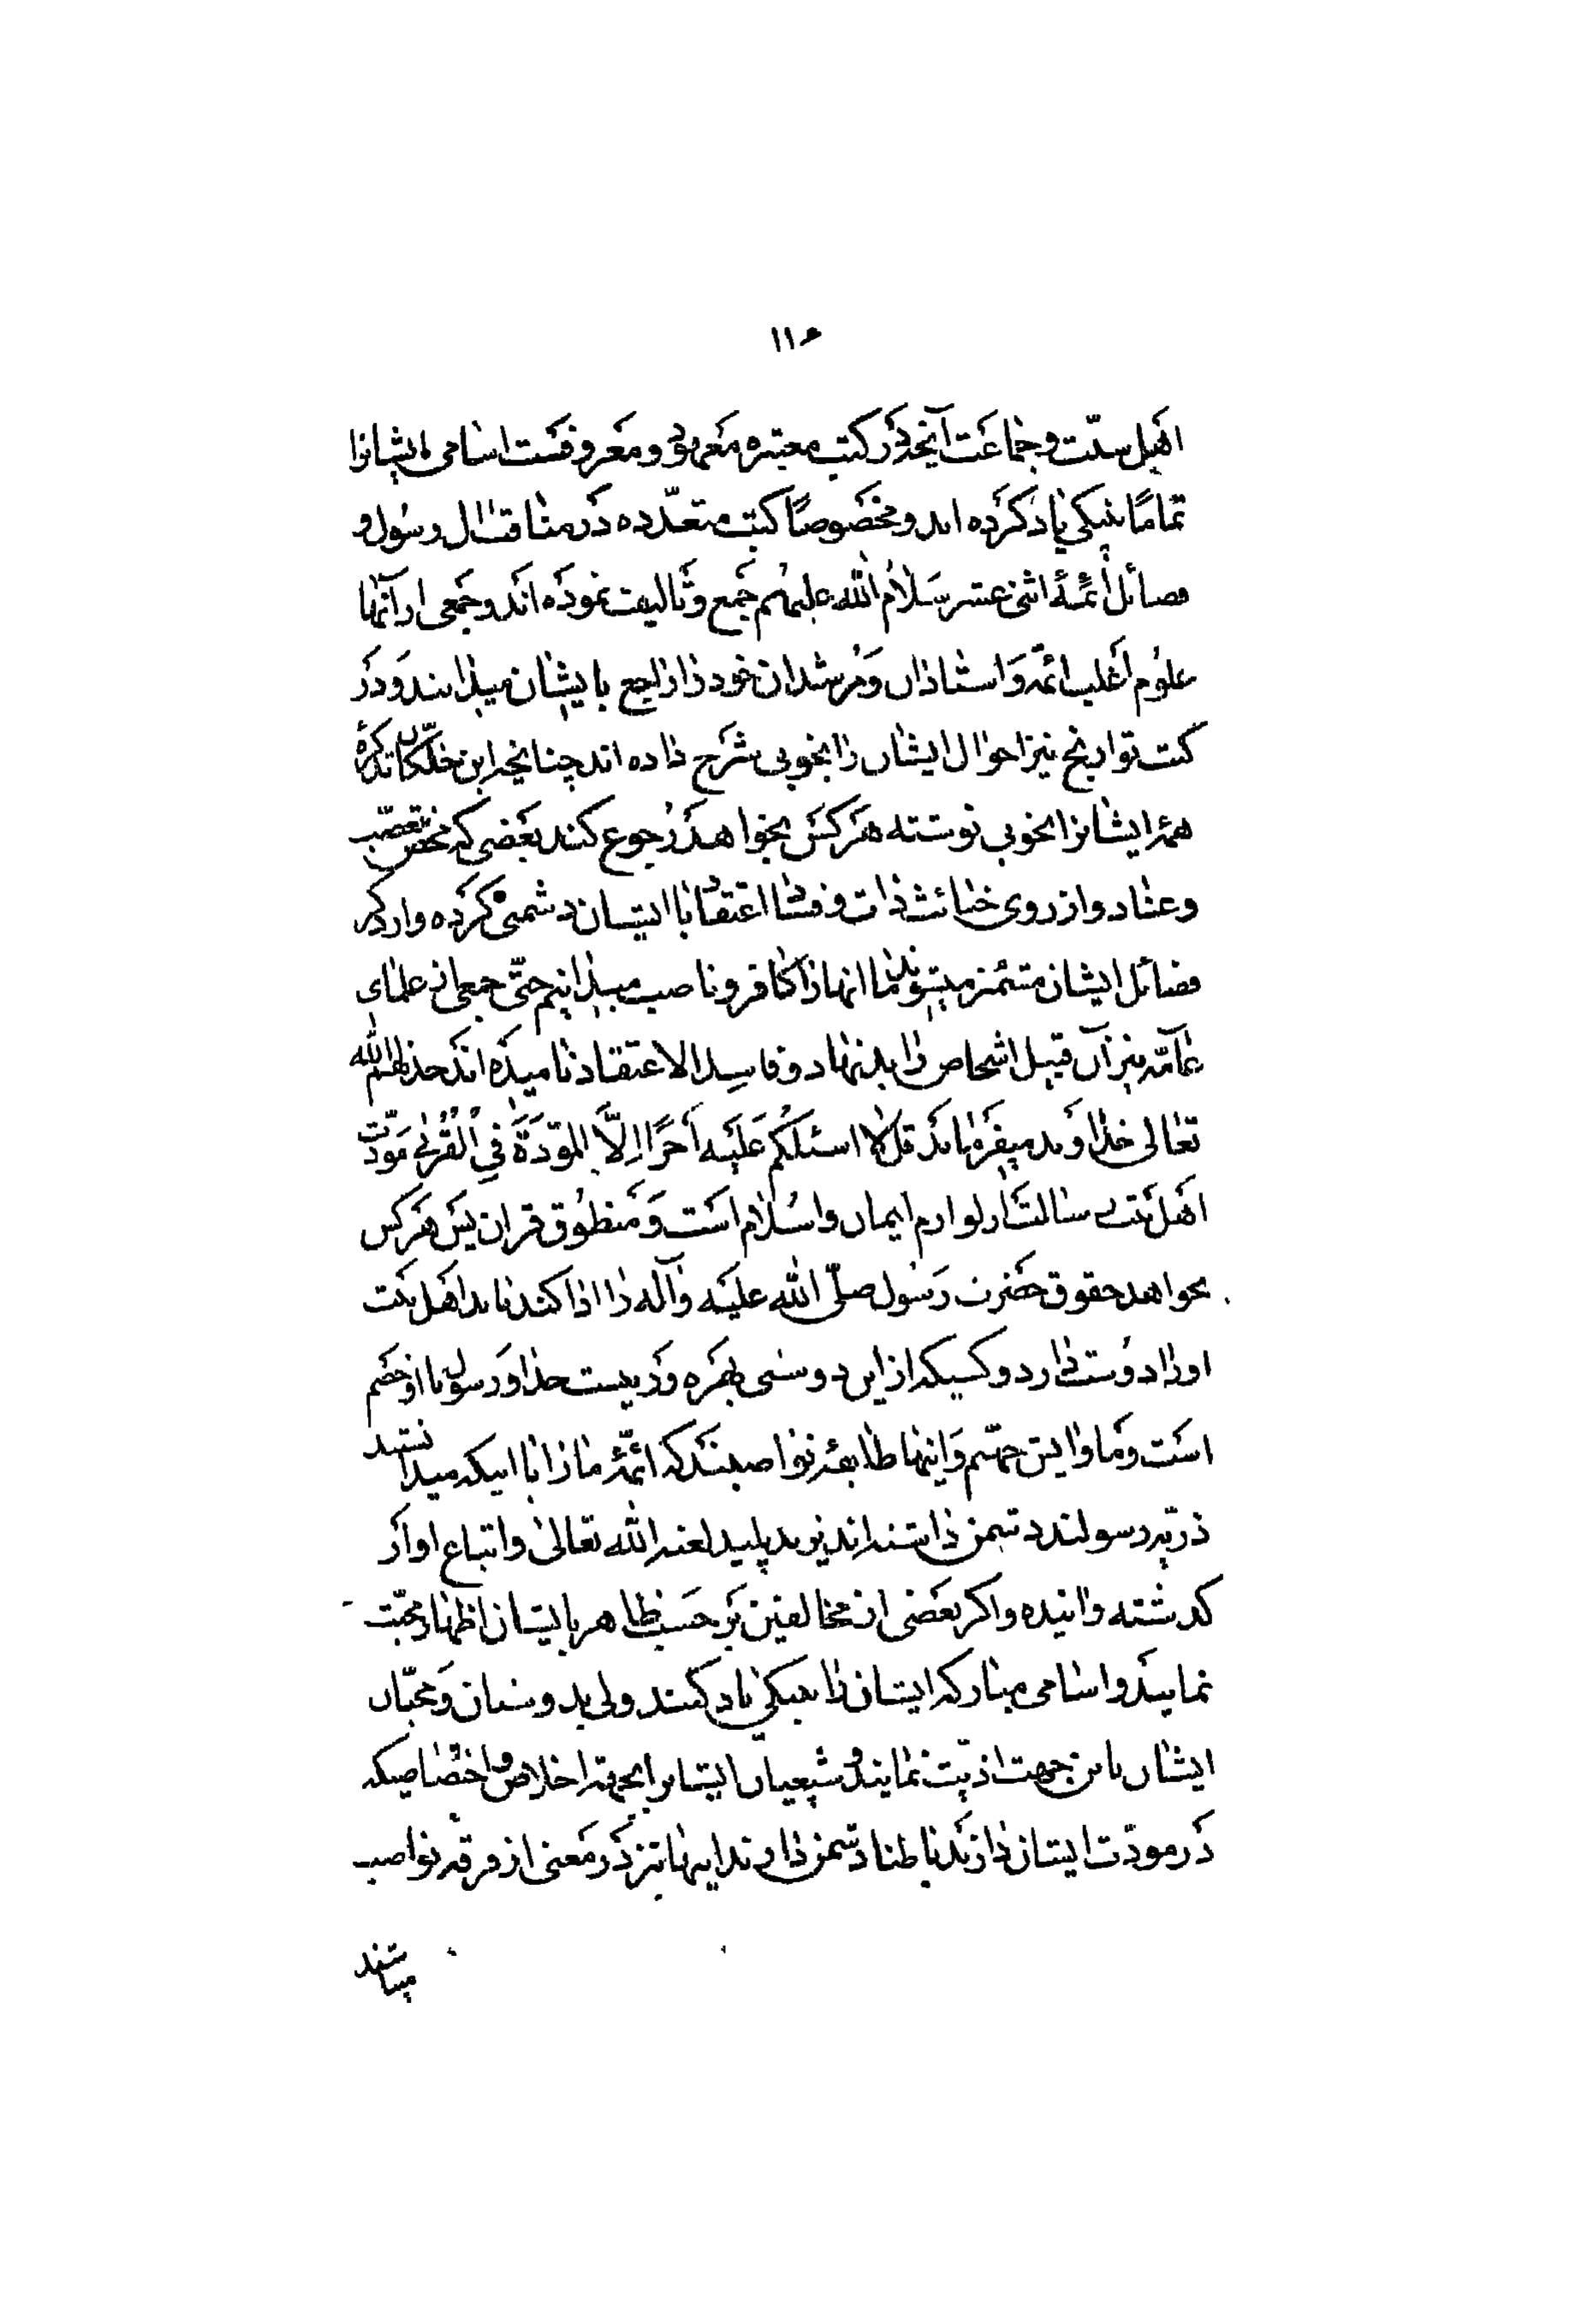 ۱۱۶
اهل سنّت و جماعت آنچه در کتب معتبره معهود و معروفست اسامی ایشانرا
تمامًا بنیکی یاد کرده اند و مخصوصًا کتب متعدّده در مناقب آل رسول و
فضائل أئمّهٔ اثنی عشر سَلامُ اللّه علیهُم جَمع و تالیف نموده اند و جمعی از آنها
علوُم اغلب ائمّه وَ استادان وَ مُرشدان خود را راجع بایشان میدانند وَ دَر
کتب تواریخ نیز احوال ایشان را بخوبی شرَح داده اند چنانچه ابن خلّکان تذکرهٔ
همهٔ ایشانرا بخوبی نوشته هَر کَس بخواهد رُجوع کند بعَضی که محض تعصّب
و عناد و از روی خباثت ذات و فساد اعتقاد با ایشان دشمنی کرده و از ذکر
فضائل ایشان مشمئز میشوند ما انها را کافر و ناصب میدانیم حتّی جمعی از علمای
عامّه نیز آن قبیل اشخاص را بد نهاد و فاسِد الاعتقاد نامیده اند خذلهم اللّه
تعالی خداوند میفَرماید قل لا اسئلکُم عَلَیه اَجرًا اِلَّا المَوَدَّةَ فِی الْقُرْبی مَودّت
اهَل بَیت رسالت از لوازم ایمان و اسْلام است وَ مَنطوُق قران پس هَر کس
بخواهد حقوق حضرت رَسُول صلّی اللّه علیَه وَ آله را ادا کند باید اهَل بَیت
او را دوُست دارد و کسیکه از این دوستی بهَره وَر نیست خدا و رسول با او خصم
است وَ ماوایش جهنّم وَ اینها طایفهٔ نواصبند که ائمّهٔ ما را با اینکه میدانستند
ذریّه رسولند دشمن داشته اند یزید پلید لعنه اللّه تعالی و اتباع او از
گذشته و آینده و اکر بعَضی از مخالفین بَر حَسب ظاهر بایشان اظهار محبّت
نمایند و اسامی مبارکه ایشان را بنیکی یاد کنند ولی بدوستان وَ محبّان
ایشان باین جهت اذیّت نمایند و شیعیان ایشانرا بجهة اخلاص و اختصاصیکه
دَر مودّت ایشان دارند باطنا دشمن دارند اینها نیز دَر مَعنی از فرقه نواصب
میباشند